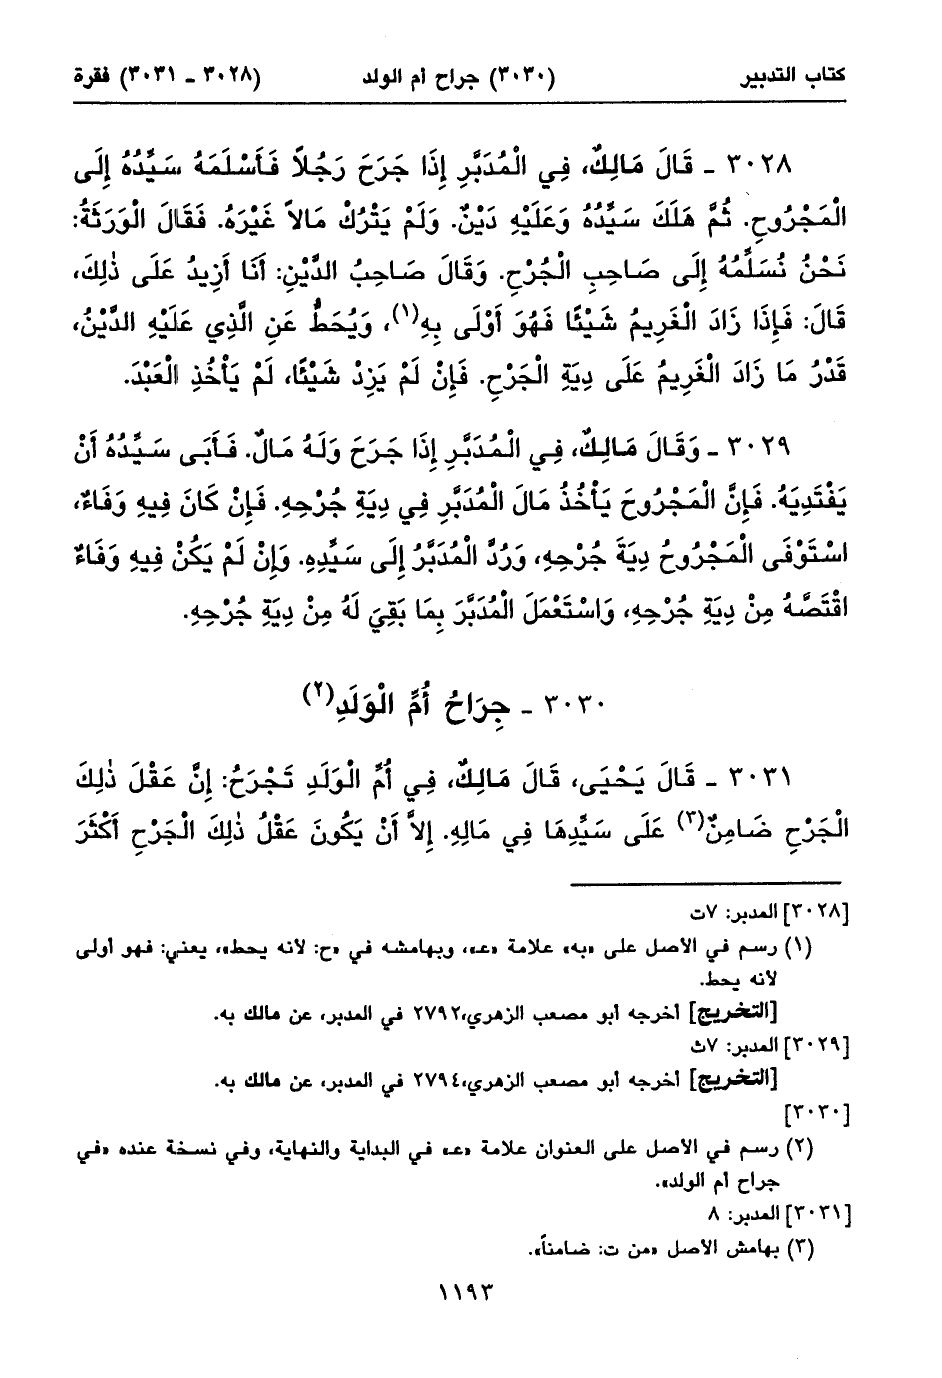 كتاب التدبير (٣٠٣٠) جراح أم الولد (٣٠٢٨ ـ ٣٠٣١) فقرة
٣٠٢٨ ـ قَالَ مَالِكٌ، فِي الْمُدَبَّرِ إِذَا جَرَحَ رَجُلاً فَأَسْلَمَهُ سَيِّدُهُ إِلَى
الْمَجْرُوحِ. ثُمَّ هَلَكَ سَيِّدُهُ وَعَلَيْهِ دَيْنٌ. وَلَمْ يَتْرُكْ مَالاً غَيْرَهُ. فَقَالَ الْوَرَثَةُ:
نَحْنُ نُسَلِّمُهُ إِلَى صَاحِبِ الْجُرْحِ. وَقَالَ صَاحِبُ الدَّيْنِ: أَنَا أَزِيدُ عَلَى ذٰلِكَ،
قَالَ: فَإِذَا زَادَ الْغَرِيمُ شَيْئًا فَهُوَ أَوْلَى بِهِ(١)، وَيُحَطُّ عَنِ الَّذِي عَلَيْهِ الدَّيْنُ،
قَدْرُ مَا زَادَ الْغَرِيمُ عَلَى دِيَةِ الْجَرْحِ. فَإِنْ لَمْ يَزِدْ شَيْئًا، لَمْ يَأْخُذِ الْعَبْدَ.
٣٠٢٩ ـ وَقَالَ مَالِكٌ، فِي الْمُدَبَّرِ إِذَا جَرَحَ وَلَهُ مَالٌ. فَأَبَى سَيِّدُهُ أَنْ
يَفْتَدِيَهُ. فَإِنَّ الْمَجْرُوحَ يَأْخُذُ مَالَ الْمُدَبَّرِ فِي دِيَةِ جُرْحِهِ. فَإِنْ كَانَ فِيهِ وَفَاءٌ،
اسْتَوْفَى الْمَجْرُوحُ دِيَةَ جُرْحِهِ، وَرُدَّ الْمُدَبَّرُ إِلَى سَيِّدِهِ. وَإِنْ لَمْ يَكُنْ فِيهِ وَفَاءٌ
اقْتَصَّهُ مِنْ دِيَةِ جُرْحِهِ، وَاسْتَعْمَلَ الْمُدَبَّرَ بِمَا بَقِيَ لَهُ مِنْ دِيَةِ جُرْحِهِ.
٣٠٣٠ ـ جِرَاحُ أُمِّ الْوَلَدِ(٢)
٣٠٣١ ـ قَالَ يَحْيَى، قَالَ مَالِكٌ، فِي أُمِّ الْوَلَدِ تَجْرَحُ: إِنَّ عَقْلَ ذٰلِكَ
الْجَرْحِ ضَامِنٌ(٣) عَلَى سَيِّدِهَا فِي مَالِهِ. إِلاَّ أَنْ يَكُونَ عَقْلُ ذٰلِكَ الْجَرْحِ أَكْثَرَ
[٣٠٢٨] المدبر: ٧ت
(١) رسم في الأصل على «به» علامة «عـ»، وبهامشه في «ح: لأنه يحط»، يعني: فهو أولى
لأنه يحط.
[التخريج] أخرجه أبو مصعب الزهري،٢٧٩٢ في المدبر، عن مالك به.
[٣٠٢٩] المدبر: ٧ث
[التخريج] أخرجه أبو مصعب الزهري،٢٧٩٤ في المدبر، عن مالك به.
[٣٠٣٠]
(٢) رسم في الأصل على العنوان علامة «عـ» في البداية والنهاية، وفي نسخة عنده «في
جراح أم الولد».
[٣٠٣١] المدبر: ٨
(٣) بهامش الأصل «من ت: ضامناً».
١١٩٣